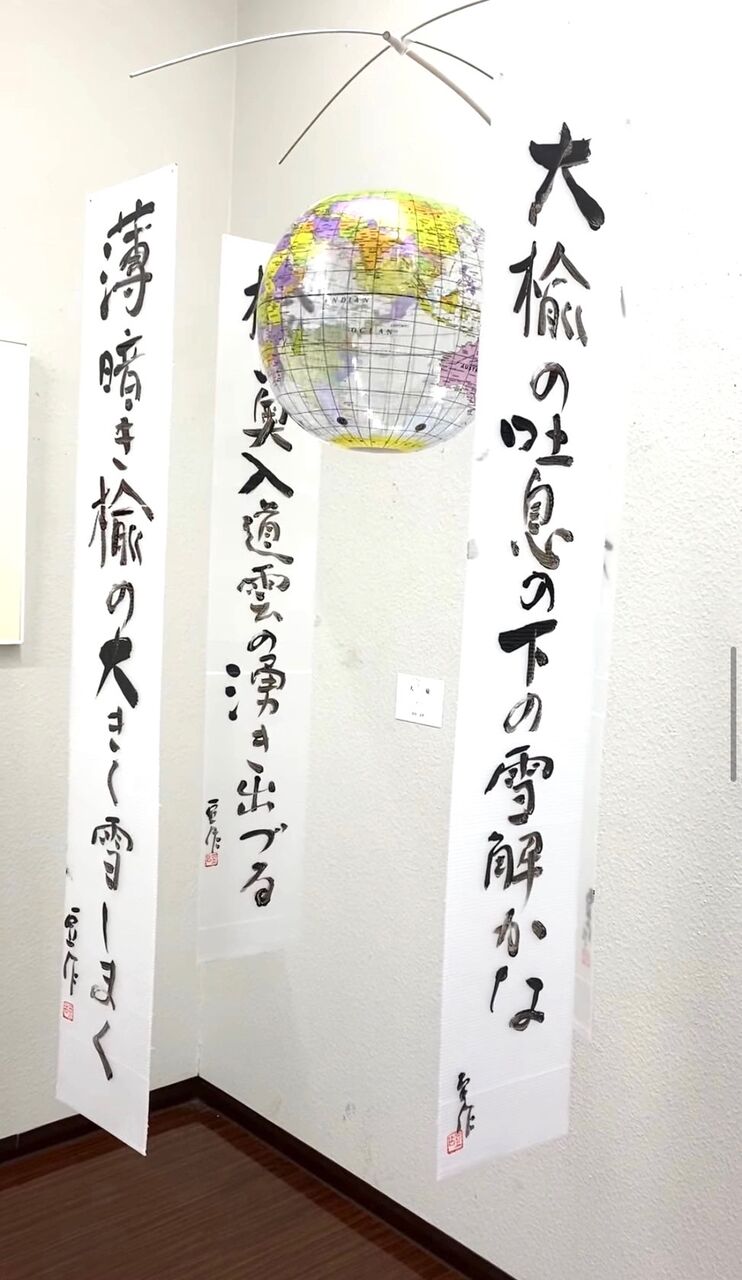 大楡の吐息の下の雪解かな
豆作
奥入道雲の湧き出づる
豆作
薄暗き楡の大きく雪しまく
豆作
INDIAN
OCEAN